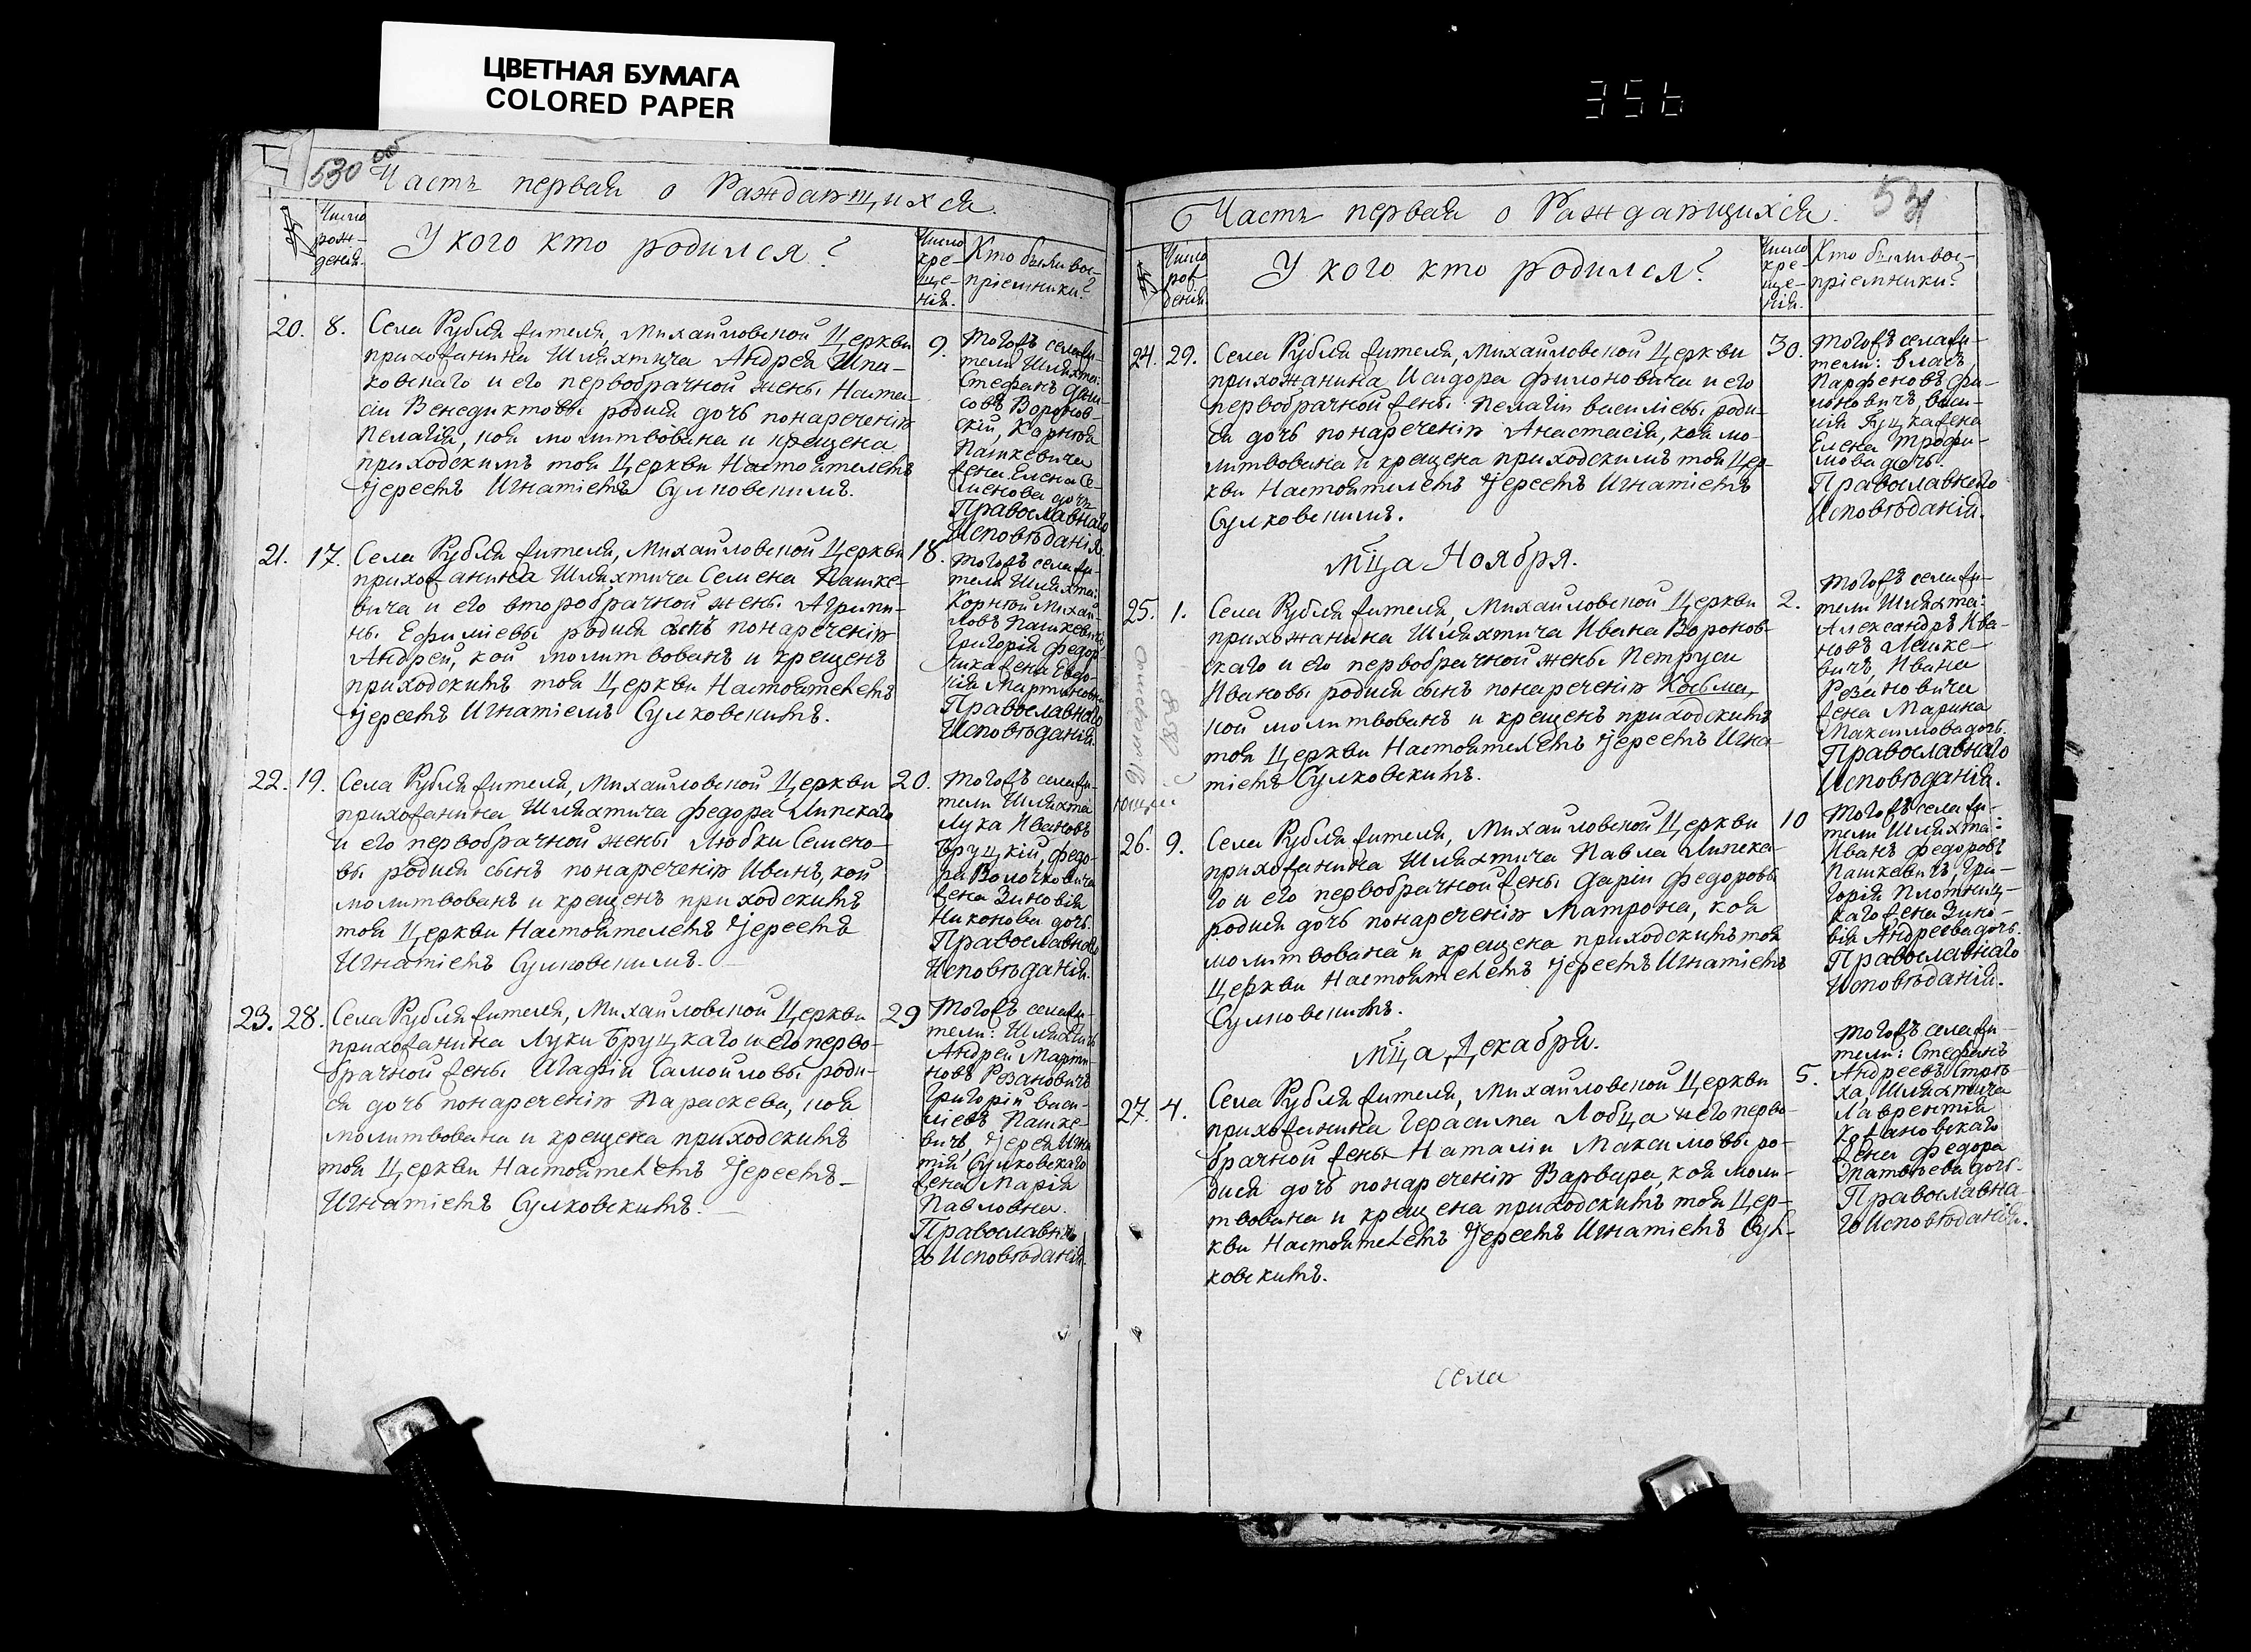 ЦВЕТНАЯ БУМАГА
COLORED PAPER
356
530 об
Часть первая о Раждающихся.
№
Число
рож-
денія.
У кого кто родился?
Число
кре-
ще-
нія.
Кто были вос-
пріемники?
20. 8.
Села Рубля жителя, Михайловской Церкви
прихожанина Шляхтича Андрея Шпа-
ковскаго и его первобрачной жены Наста-
сіи Венедиктовы родися дочь понареченію
Пелагія, коя молитвована и крещена
приходскимъ тоя Церкви Настоятелемъ
Іереемъ Игнатіемъ Сулковскимъ.
9.
Тогожъ села жи-
тели Шляхта:
Стефанъ Дани-
совъ Воронов-
скій, Корнея
Пашкевича
жена Елена Се-
менова дочь
Православнаго
Исповѣданія.
21. 17.
Села Рубля жителя, Михайловской Церкви
прихожанина Шляхтича Семена Пашке-
вича и его второбрачной жены Агрипи-
ны Ефиміевы родися сынъ понареченію
Андрей, кой молитвованъ и крещенъ
приходскимъ тоя Церкви Настоятелемъ
Іереемъ Игнатіемъ Сулковскимъ.
18.
Тогожъ села жи-
тели Шляхта:
Корней Михай-
ловъ Пашкевичъ
Григорія Федор-
чика жена Евдо-
кія Мартиновна
Православнаго
Исповѣданія.
22. 19.
Села Рубля жителя, Михайловской Церкви
прихожанина Шляхтича Федора Липскаго
и его первобрачной жены Любки Семено-
вы родися сынъ понареченію Иванъ, кой
молитвованъ и крещенъ приходскимъ
тоя Церкви Настоятелемъ Іереемъ
Игнатіемъ Сулковскимъ.
20.
Тогожъ села жи-
тели Шляхта
Лука Ивановъ
Бруцкій, Федо-
ра Волочковича
жена Зиновія
Никонова дочь.
Православнаго
Исповѣданія.
23. 28.
Села Рубля жителя, Михайловской Церкви
прихожанина Луки Бруцкаго и его перво-
брачной жены Агафіи Самойловы роди-
ся дочь понареченію Параскева, коя
молитвована и крещена приходскимъ
тоя Церкви Настоятелемъ Іереемъ
Игнатіемъ Сулковскимъ.
29
Тогожъ села жи-
тели: Шляхтичъ
Андрей Марти-
новъ Резановичъ
Григорій Васи-
ліевъ Пашке-
вичъ, Іерея Игна
тія Сулковскаго
жена Марія
Павловна.
Православна
го Исповѣданія.
531
Часть первая о Раждающихся.
№
Число
рож
денія
У кого кто родился?
Число
кре-
ще-
нія.
Кто были вос-
пріемники?
24. 29.
Села Рубля жителя, Михайловской Церкви
прихожанина Исидора Филоновича и его
первобрачной жены Пелагіи Василіевы роди-
ся дочь понареченію Анастасія, коя мо-
литвована и крещена приходскимъ тоя Цер-
кви Настоятелемъ Іереемъ Игнатіемъ
Сулковскимъ.
30.
Тогожъ села жи-
тели: Власъ
Парфеновъ Фи-
лоновичъ, Васи-
лія жена
Елена Трофи-
мова дочь.
Православнаго
Исповѣданія.
мца Ноября.
25. 1.
Села Рубля жителя, Михайловской Церкви
прихожанина Шляхтича Ивана Воронов-
скаго и его первобрачной жены Петруси
Ивановы родися сынъ понареченію Косьма,
кой молитвованъ и крещенъ приходскимъ
тоя Церкви Настоятелемъ Іереемъ Игна-
тіемъ Сулковскимъ.
2.
Тогожъ села жи-
тели Шляхта:
Александръ Ива-
новъ Лешке-
вичъ, Ивана
Резановича
жена Марина
Максимова дочь.
Православнаго
Исповѣданія.
26. 9.
Села Рубля жителя, Михайловской Церкви
прихожанина Шляхтича Павла Липска-
го и его первобрачной жены Дарій Федоровы
родися дочь понареченію Матрона, коя
молитвована и крещена приходскимъ тоя
Церкви Настоятелемъ Іереемъ Игнатіемъ
Сулковскимъ.
10
Тогожъ села жи-
тели Шляхта:
Иванъ Федоровъ
Пашкевичъ, Гри-
горія Плотниц-
каго жена Зино-
вія Андреева дочь.
Православнаго
Исповѣданія.
мца Декабря.
27. 4.
Села Рубля жителя, Михайловской Церкви
прихожанина Герасима Лобца и его перво-
брачной жены Наталіи Максимовы ро-
дися дочь понареченію Варвара, коя моли-
твована и крещена приходскимъ тоя Цер-
кви Настоятелемъ Іереемъ Игнатіемъ Сул-
ковскимъ.
5.
Тогожъ села жи-
тели: Стефанъ
Андреевъ
Шляхтича
Лаврентія
Кожановскаго
жена Федора
Игнатьева дочь.
Православна
го Исповѣданія.
села